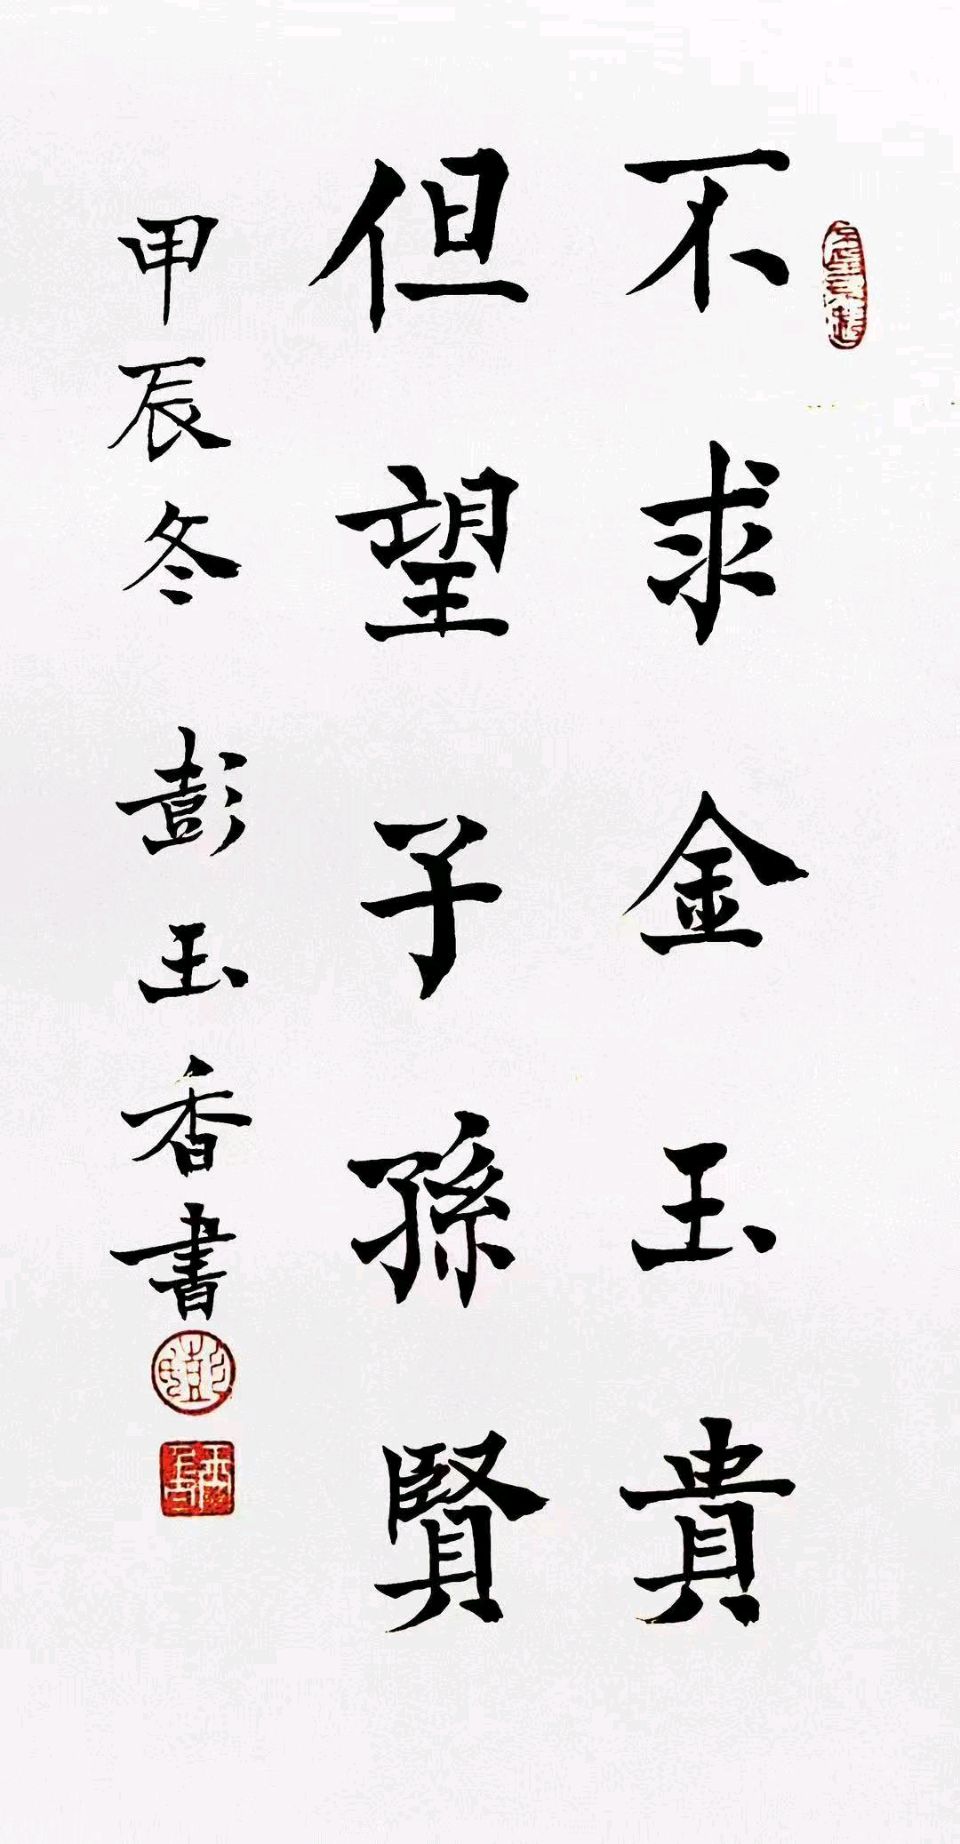 不求金玉貴
但望子孫賢
甲辰冬 彭玉香書